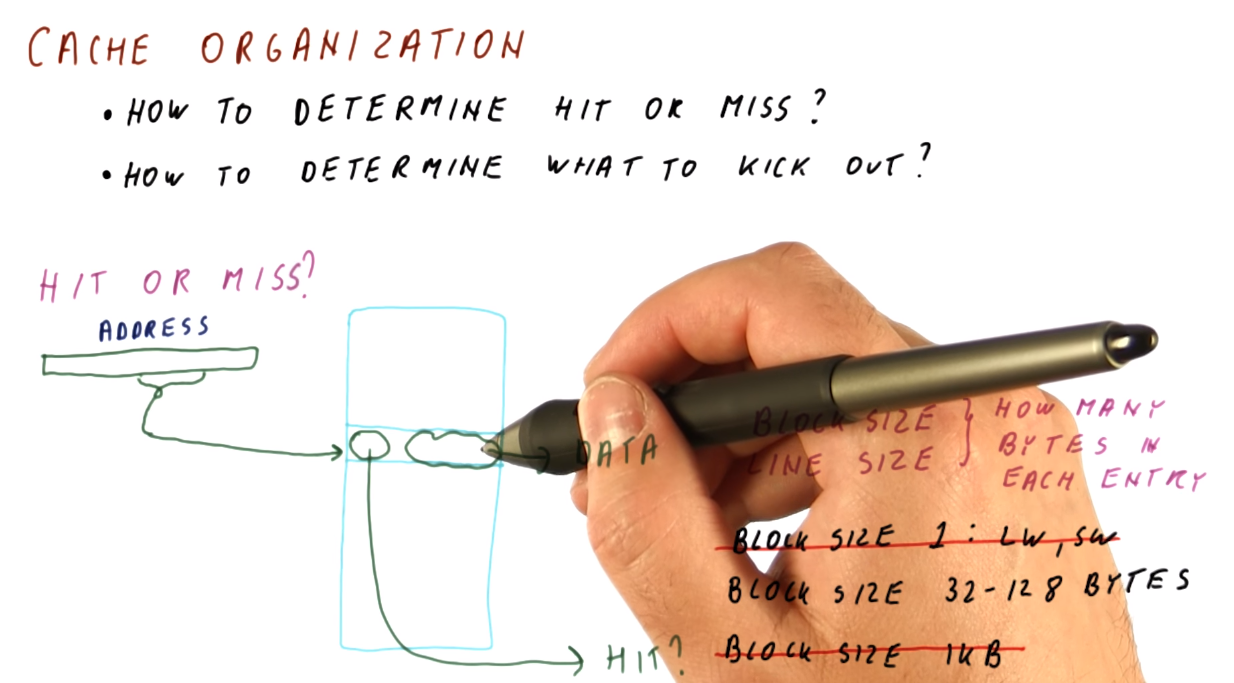 CACHE ORGANIZATION
• HOW TO DETERMINE HIT OR MISS?
• HOW TO DETERMINE WHAT TO KICK OUT?
HIT OR MISS?
ADDRESS
DATA
HIT?
BLOCK SIZE
LINE SIZE
HOW MANY
BYTES IN
EACH ENTRY
BLOCK SIZE 1: LW, SW
BLOCK SIZE 32-128 BYTES
BLOCK SIZE 1KB